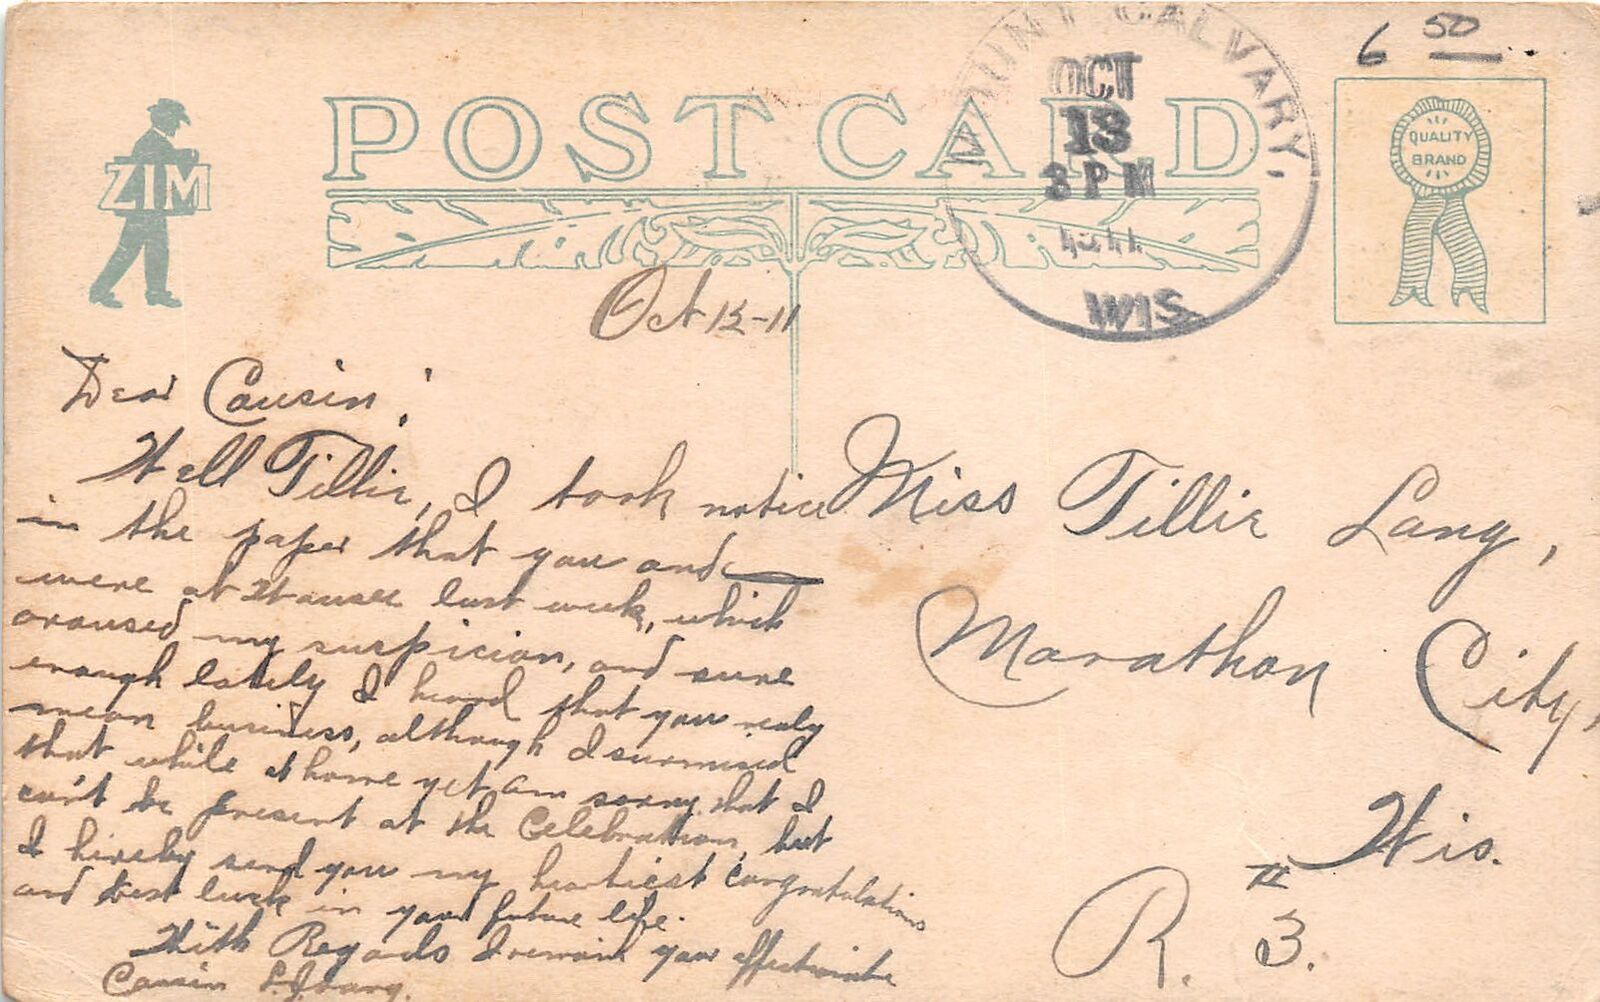 6 50
POST CARD
ZIM
QUALITY
BRAND
MOUNT CALVARY,
OCT
13
3 PM
1911
WIS.
Oct 12-11
Dear Cousin:
Well Tillie, I took notice
in the paper that you and —
were at Wausau last week, which
aroused my suspicion, and sure
enough lately I heard that you realy
mean business, although I surmised
that while at home yet am sorry that I
can't be present at the Celebration, but
I hireby send you my heartiest Congratulations
and best luck in your future life.
With Regards I remain your affectionate
Cousin
Miss Tillie Lang,
Marathon City,
Wis.
R. # 3.